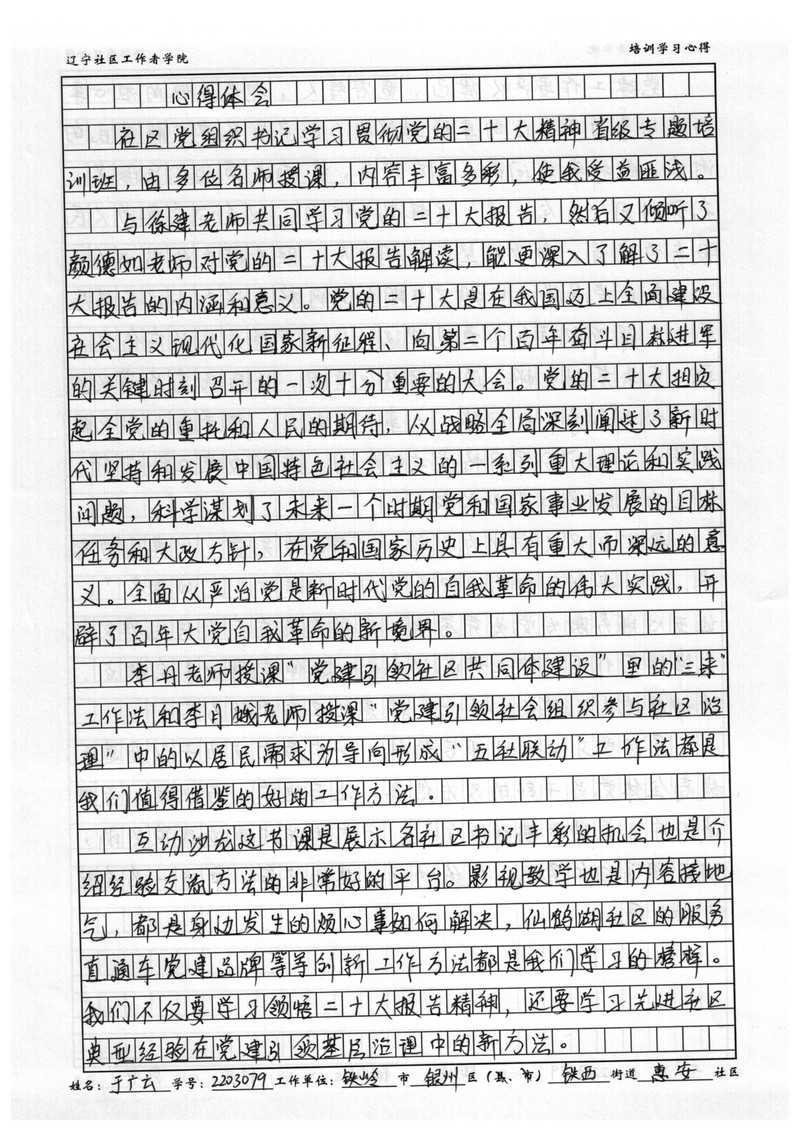 辽宁社区工作者学院 培训学习心得
心得体会
社区党组织书记学习贯彻党的二十大精神省级专题培
训班，由多位名师授课，内容丰富多彩，使我受益匪浅。
与徐建老师共同学习党的二十大报告，然后又倾听了
颜德如老师对党的二十大报告解读，能更深入了解了二十
大报告的内涵和意义。党的二十大是在我国迈上全面建设
社会主义现代化国家新征程、向第二个百年奋斗目标进军
的关键时刻召开的一次十分重要的大会。党的二十大担负
起全党的重托和人民的期待，从战略全局深刻阐述了新时
代坚持和发展中国特色社会主义的一系列重大理论和实践
问题，科学谋划了未来一个时期党和国家事业发展的目标
任务和大政方针，在党和国家历史上具有重大而深远的意
义。全面从严治党是新时代党的自我革命的伟大实践，开
辟了百年大党自我革命的新境界。
李丹老师授课“党建引领社区共同体建设”里的“三来”
工作法和李月娥老师授课“党建引领社会组织参与社区治
理”中的以居民需求为导向形成“五社联动”工作法都是
我们值得借鉴的好的工作方法。
互动沙龙这节课是展示各社区书记丰彩的机会也是介
绍经验交流方法的非常好的平台。影视教学也是内容接地
气，都是身边发生的烦心事如何解决，仙鹤湖社区的服务
直通车党建品牌等等创新工作方法都是我们学习的榜样。
我们不仅要学习领悟二十大报告精神，还要学习先进社区
典型经验在党建引领基层治理中的新方法。
姓名：于广云 学号：2203079 工作单位：铁岭 市 银州 区（县、市） 铁西 街道 惠安 社区